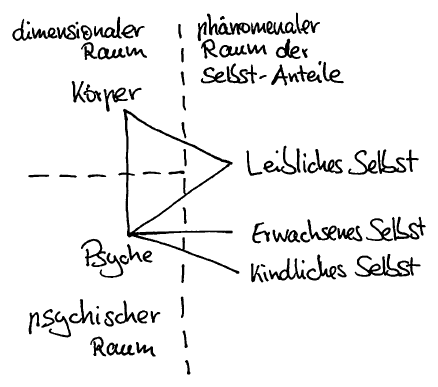 dimensionaler
Raum
phänomenaler
Raum der
Selbst-Anteile
Körper
Leibliches Selbst
Erwachsenes Selbst
Psyche
Kindliches Selbst
psychischer
Raum